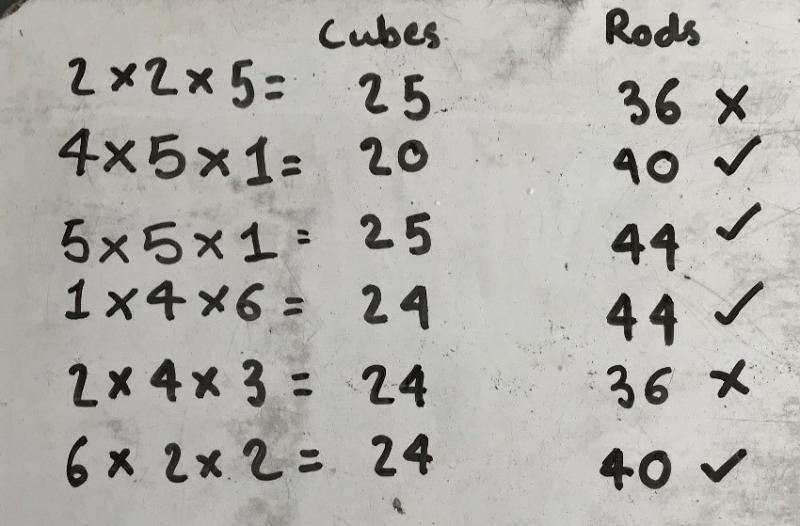 Cubes Rods
2×2×5= 25 36 ×
4×5×1= 20 40 ✓
5×5×1= 25 44 ✓
1×4×6= 24 44 ✓
2×4×3= 24 36 ×
6×2×2= 24 40 ✓